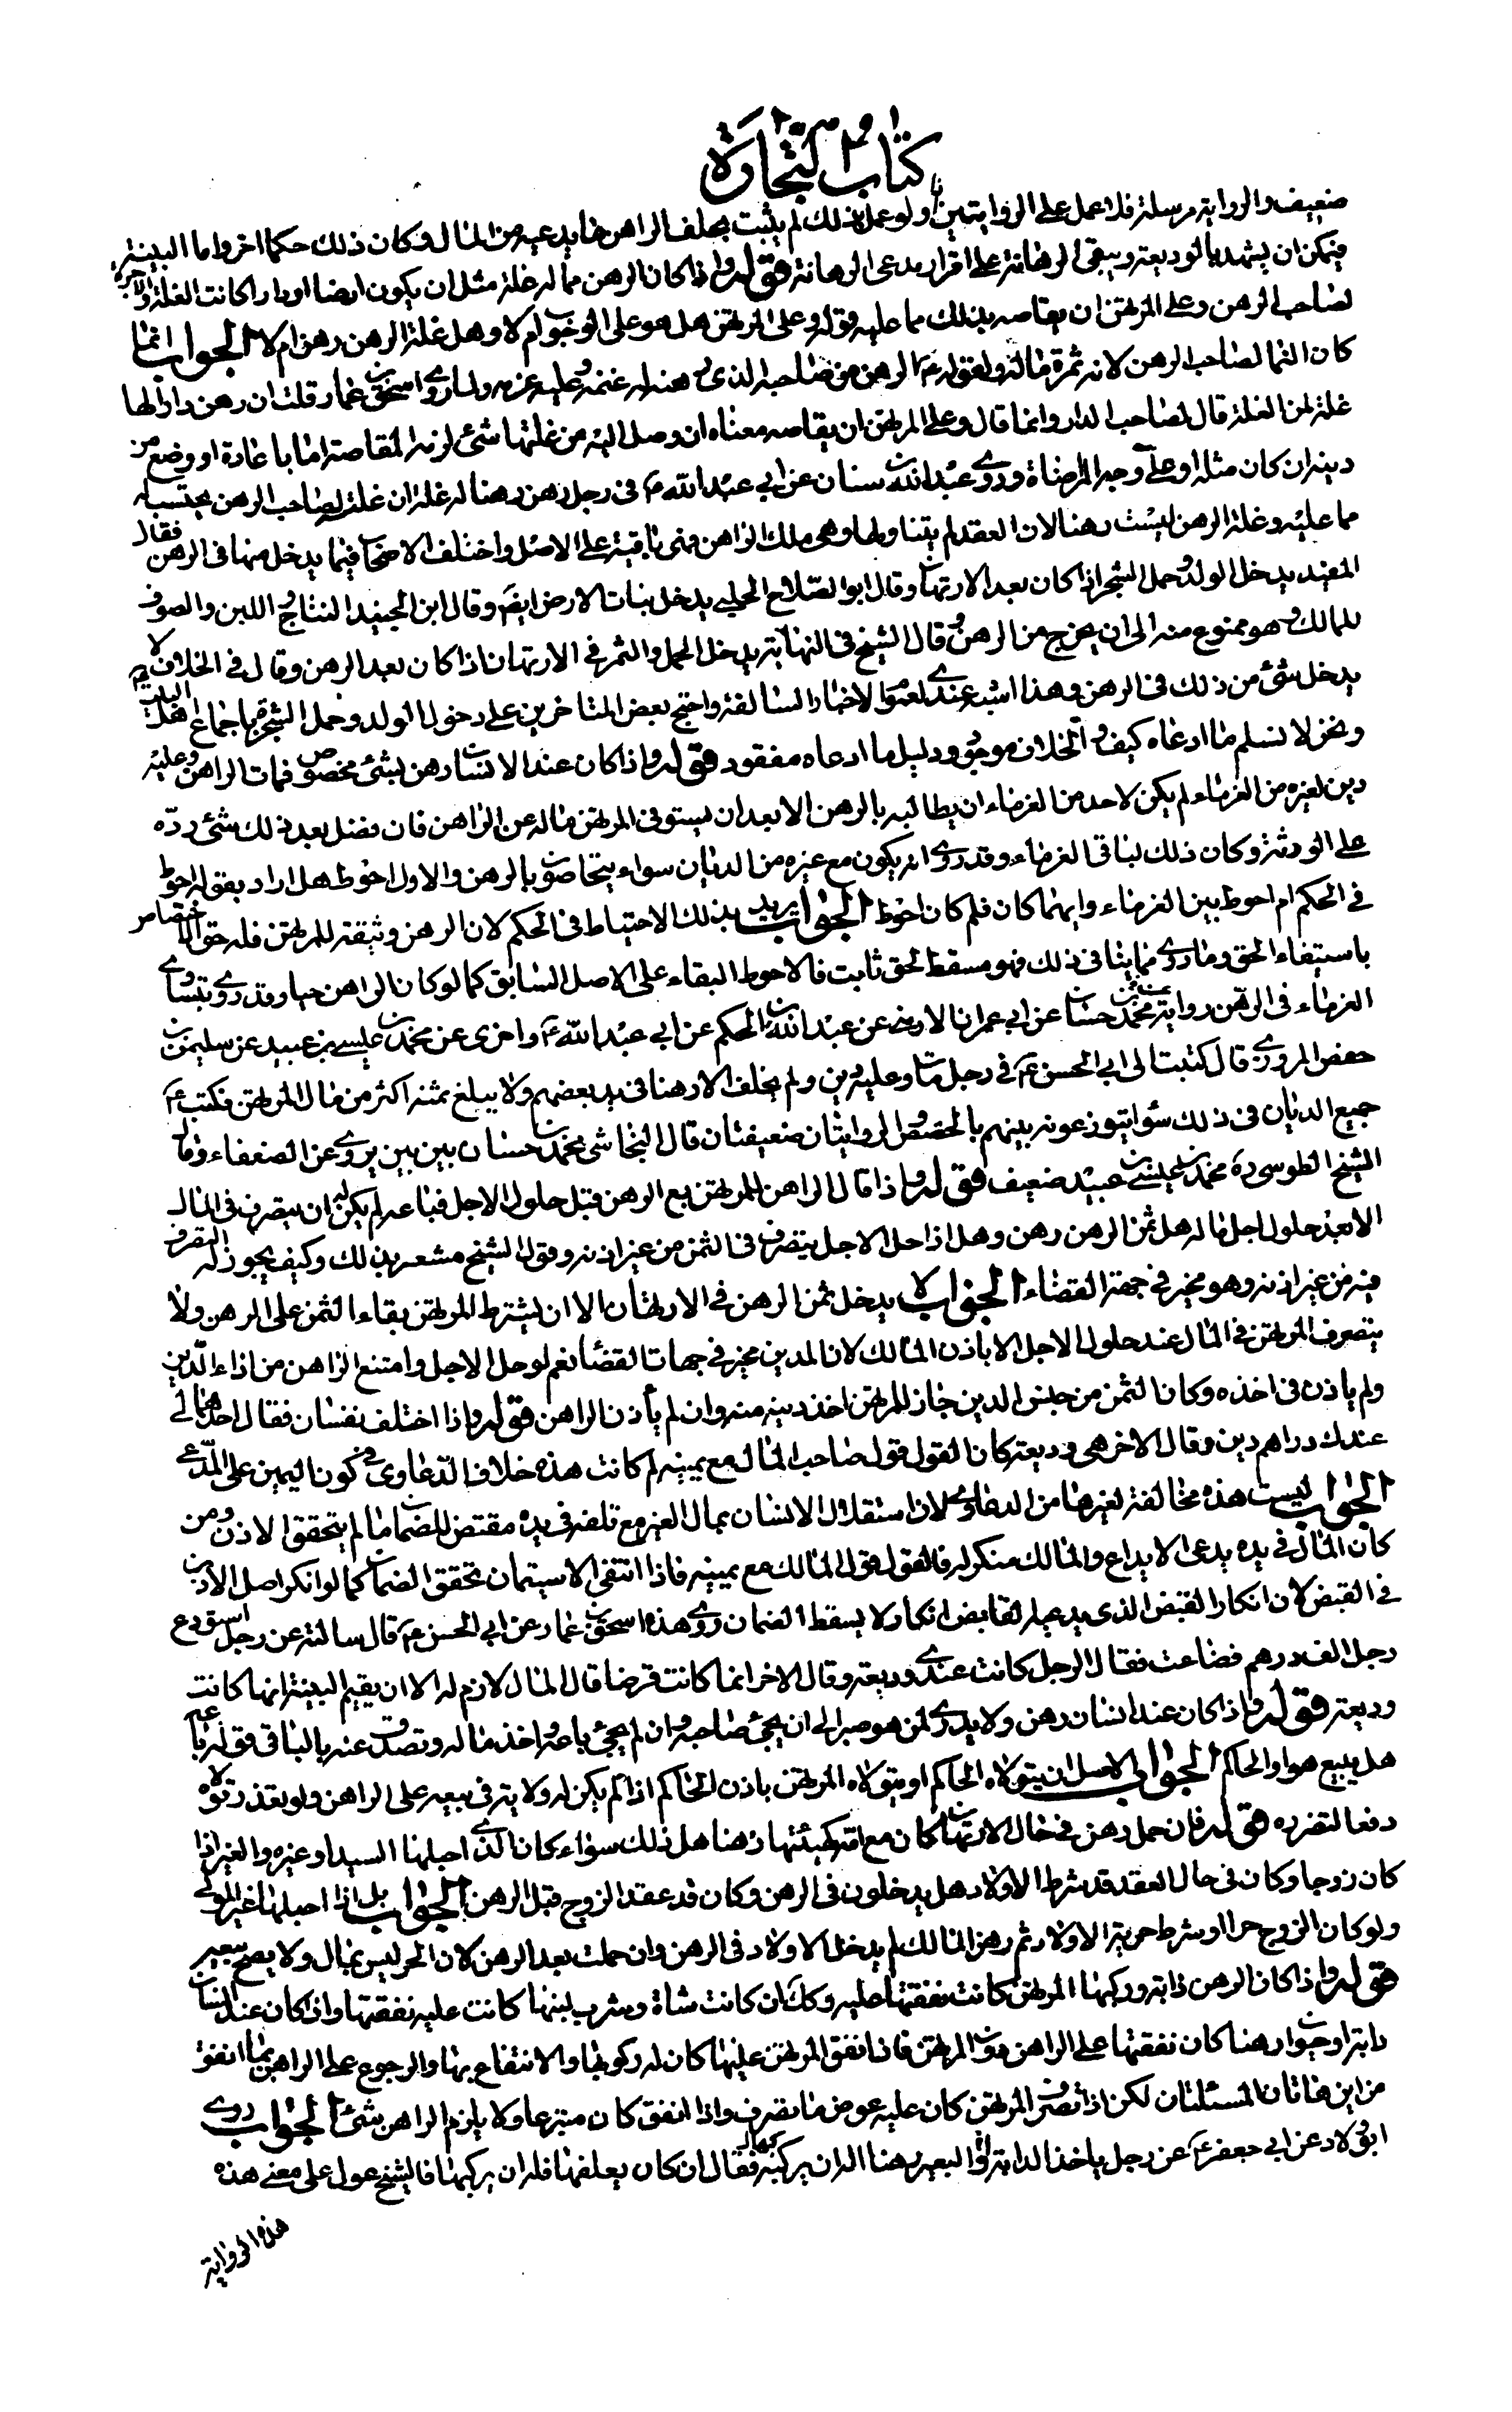 كتاب التجارة
ضعيف والرواية مرسلة فلا عمل على الروايتين ولو عمل بذلك لم يثبت بحلف الراهن ما يدعيه من المال وكان ذلك حكما اخر واما البينة
فيمكن ان يشهد بالوديعة ويبقى الرهانة على اقرار مدعى الرهانة قوله واذا كان الرهن مما له غلة مثل ان يكون ارضا او دارا كانت الغلة والاجرة
لصاحب الرهن وعلى المرتهن ان يقاصه بذلك مما عليه وقوله وعلى المرتهن هل هو على الوجوب ام لا وهل غلة الرهن رهن ام لا الجواب انما
كان النما لصاحب الرهن لانه ثمرة ماله ولقوله ع الرهن من صاحبه الذى رهنه له غنمه وعليه غرمه ولما روى اسحق بن عمار قلت ان رهن دارا لها
غلة لمن الغلة قال لصاحب الدار وانما قال وعلى المرتهن ان يقاصه معناه ان وصل اليه من غلتها شئ لزمه المقاصة اما باعادة او وضع من
دينه ان كان مثله او على وجه المراضاة وروى عبد الله بن سنان عن ابى عبد الله ع فى رجل رهن رهنا له غلة ان غلته لصاحب الرهن يحتسب له
مما عليه وغلة الرهن ليست رهنا لان العقد لم يتناولها وهى ملك الراهن فهى باقية على الاصل واختلف الاصحاب فيما يدخل منها فى الرهن فقال
المفيد يدخل الولد وحمل الشجر اذا كان بعد الارتهان وقال ابو الصلاح الحلبى يدخل نبات الارض ايضا وقال ابن الجنيد النتاج واللبن والصوف
للمالك وهو ممنوع منه الى ان يخرج من الرهن وقال الشيخ فى النهاية يدخل الحمل والثمر فى الارتهان اذا كان بعد الرهن وقال فى الخلاف لا
يدخل شئ من ذلك فى الرهن وهذا اشبه عندى لعموم الاخبار السالفة واحتج بعض المتاخرين على دخول الولد وحمل الشجرة باجماع اهل البيت
ونحن لا نسلم ما ادعاه كيف والخلاف موجود ودليل ما ادعاه مفقود قوله واذا كان عند الانسان رهن بشئ مخصوص فمات الراهن وعليه
دين لغيره من الغرماء لم يكن لاحد من الغرماء ان يطالبه بالرهن الا بعد ان يستوفى المرتهن ماله عن الراهن فان فضل بعد ذلك شئ رده
على الورثة وكان ذلك لباقى الغرماء وقد روى انه يكون مع غيره من الديان سواء يتحاصون بالرهن والاول احوط هل اراد بقوله احوط
فى الحكم ام احوط بين الغرماء وايهما كان فلم كان احوط الجواب يريد بذلك الاحتياط فى الحكم لان الرهن وثيقة للمرتهن فله حق الاختصاص
باستيفاء الحق وما روى مما ينافى ذلك فهو مسقط لحق ثابت فالاحوط البقاء على الاصل السابق كما لو كان الراهن حيا وقد روى بتساوى
الغرماء فى الرهن رواية عن محمد بن حسان عن ابى عمران الارمنى عن عبد الله بن الحكم عن ابى عبد الله ع واخرى عن محمد بن عيسى بن عبيد عن سليمن بن
حفص المروزى قال كتبت الى ابى الحسن ع فى رجل مات وعليه دين ولم يخلف الا رهنا فى يد بعضهم ولا يبلغ ثمنه اكثر من مال المرتهن فكتب ع
جميع الديان فى ذلك سواء يتوزعونه بينهم بالحصص والروايتان ضعيفتان قال النجاشى محمد بن حسان بين بين يروى عن الضعفاء وقال
الشيخ الطوسى ره محمد بن عيسى بن عبيد ضعيف قوله واذا قال الراهن للمرتهن بع الرهن قبل حلول الاجل فباعه لم يكن له ان يتصرف فى المال
الا بعد حلول اجل ماله هل ثمن الرهن رهن وهل اذا حل الاجل يتصرف فى الثمن من غير اذنه وقول الشيخ مشعر بذلك وكيف يجوز له التصرف
فيه من غير اذنه وهو مخير فى جهة القضاء الجواب لا يدخل ثمن الرهن فى الارتهان الا ان يشترط المرتهن بقاء الثمن على الرهن ولا
يتصرف المرتهن فى المال عند حلول الاجل الا باذن المالك لان المدين مخير فى جهات القضا نعم لو حل الاجل وامتنع الراهن من اداء الدين
ولم ياذن فى اخذه وكان الثمن من جنس الدين جاز للمرتهن اخذ دينه منه وان لم يأذن الراهن قوله واذا اختلف نفسان فقال احدهما لى
عندك دراهم دين وقال الاخر هى وديعة كان القول قول صاحب المال مع يمينه لم كانت هذه خلاف الدعاوى فى كون اليمين على المدعى
الجواب ليست هذه مخالفة لغيرها من الدعاوى لان استقلال الانسان بمال الغير مع تلفه فى يده مقتض للضمان ما لم يتحقق الاذن ومن
كان المال فى يده يدعى الايداع والمالك منكر له فالقول قول المالك مع يمينه فاذا انتفى الاستيمان تحقق الضمان كما لو انكر اصل الاذن
فى القبض لان انكار القبض الذى يدعيه القابض انكار ولا يسقط الضمان روى هذه اسحق بن عمار عن ابى الحسن ع قال سالته عن رجل استودع
رجلا الف درهم فضاعت فقال الرجل كانت عندى وديعة وقال الاخر انما كانت قرضا قال المال لازم له الا ان يقيم البينة انها كانت
وديعة قوله واذا كان عند انسان رهن ولا يدرى لمن هو صبر الى ان يجئ صاحبه وان لم يجئ باعه واخذ ماله وتصدق عنه بالباقى قوله باعه
هل يبيع هو او الحاكم الجواب الاصل ان يتولاه الحاكم او يتولاه المرتهن باذن الحاكم اذا لم يكن له ولاية فى بيعه على الراهن ولو تعذر تولاه
دفعا لتضرره قوله فان حمل رهن فى حال الارتهان كان مع امه كهيئتها رهنا هل ذلك سواء كان الذى احبلها السيد او غيره والغير اذا
كان زوجا وكان فى حال العقد قد شرط الاولاد هل يدخلون فى الرهن وكان قد عقد الزوج قبل الرهن الجواب بل اذا احبلها غير المولى
ولو كان الزوج حرا او شرط حرية الاولاد ثم رهن المالك لم يدخل الاولاد فى الرهن وان حملت بعد الرهن لان الحر ليس بمال ولا يصح بيعه
قوله واذا كان الرهن دابة وركبها المرتهن كانت نفقتها عليه وكك ان كانت شاة وشرب لبنها كانت عليه نفقتها واذا كان عند انسان
دابة او حيوان رهنا كان نفقتها على الراهن دون المرتهن فاذا انفق المرتهن عليها كان له ركوبها والانتفاع بها والرجوع على الراهن بما انفق
من اين هاتان المسئلتان لكن اذا تصرف المرتهن كان عليه عوض ما تصرف واذا انفق كان متبرعا ولا يلزم الراهن شئ الجواب روى
ابو ولاد عن ابى جعفر ع عن رجل ياخذ الدابة او البعير رهنا اله ان يركبه فقال ان كان يعلفها فله ان يركبها فالشيخ عول على معنى هذه
هذه الرواية